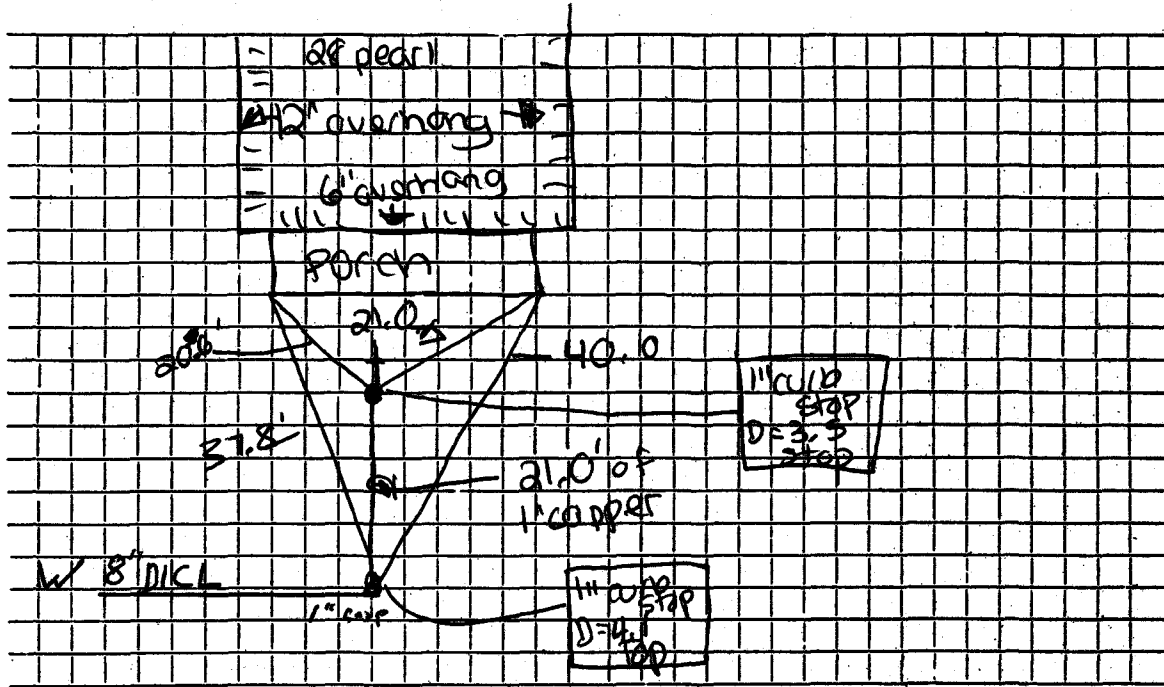 28 pearl
12" overhang
6" overhang
Porch
21.0
40.0
37.8'
1" curb
stop
D=3.5
stop
21.0' of
1" copper
W 8" DICL
1" corp
1"
stop
top